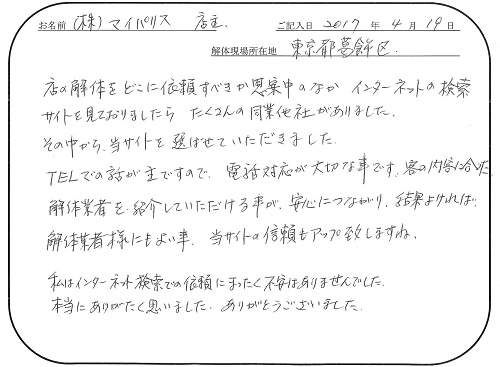 お名前 (株)マイパリス 店主 ご記入日 2017 年 4 月 19 日
解体現場所在地 東京都葛飾区
店の解体をどこに依頼すべきか思案中のなか インターネットの検索
サイトを見ておりましたら たくさんの同業他社がありました。
その中から、当サイトを選ばせていただきました。
TELでの話が主ですので、電話対応が大切な事です、客の内容に合った
解体業者を紹介していただける事が、安心につながり、結果よければ
解体業者様にもよい事、当サイトの信頼もアップ致しますね。
私はインターネット検索での信頼にまったく不安はありませんでした。
本当にありがたく思いました。ありがとうございました。